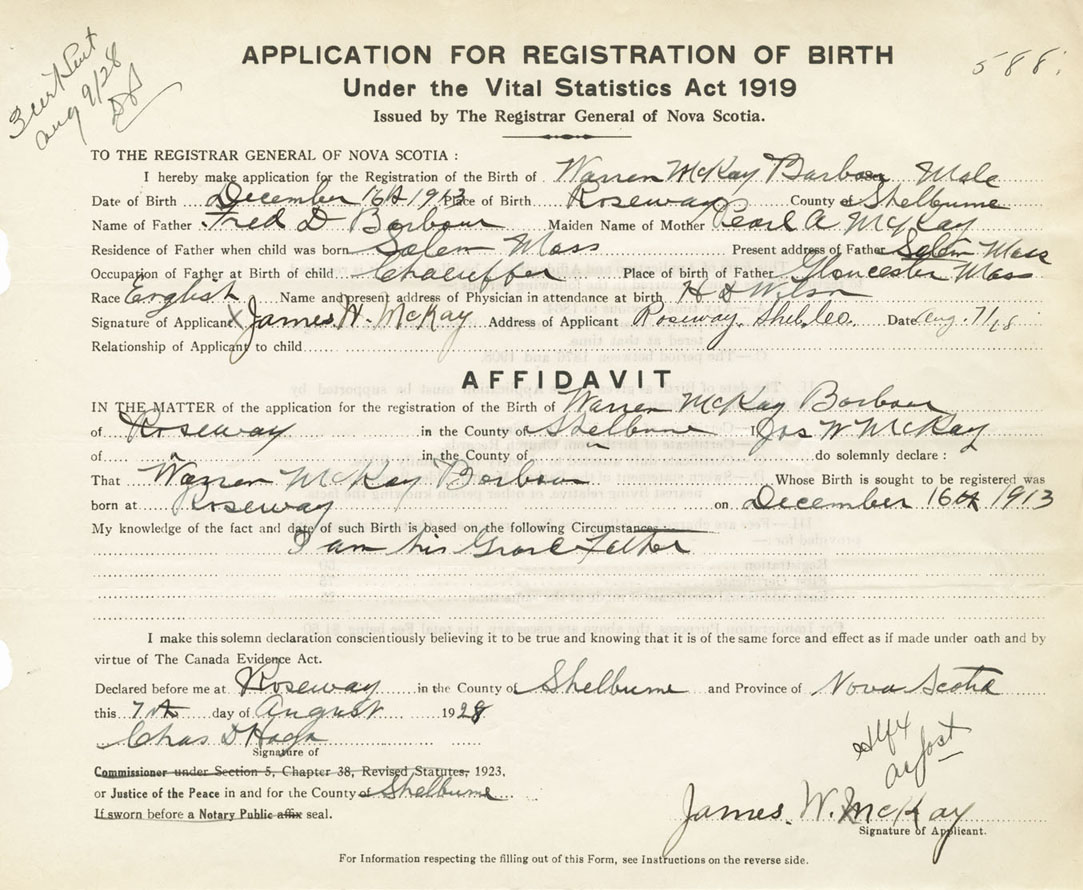 Cert Sent
Aug 9/28
588
APPLICATION FOR REGISTRATION OF BIRTH
Under the Vital Statistics Act 1919
Issued by The Registrar General of Nova Scotia.
TO THE REGISTRAR GENERAL OF NOVA SCOTIA :
I hereby make application for the Registration of the Birth of Warren McKay Barbour Male
Date of Birth December 16th 1913 Place of Birth Roseway County of Shelburne
Name of Father Fred D Barbour Maiden Name of Mother Pearl A McKay
Residence of Father when child was born Salem Mass Present address of Father Salem Mass
Occupation of Father at Birth of child Chaeuffer Place of birth of Father Gloucester Mass
Race English Name and present address of Physician in attendance at birth H D Wilson
Signature of Applicant X James W. McKay Address of Applicant Roseway. Shel. Co. Date Aug. 7/28
Relationship of Applicant to child
AFFIDAVIT
IN THE MATTER of the application for the registration of the Birth of Warren McKay Barbour
of Roseway in the County of Shelburne I Jas W McKay
of " in the County of " do solemnly declare :
That Warren McKay Barbour Whose Birth is sought to be registered was
born at Roseway on December 16th 1913
My knowledge of the fact and date of such Birth is based on the following Circumstances :
I am his Grand Father
I make this solemn declaration conscientiously believing it to be true and knowing that it is of the same force and effect as if made under oath and by
virtue of The Canada Evidence Act.
Declared before me at Roseway in the County of Shelburne and Province of Nova Scotia
this 7th day of August 1928
Chas D Hagar
Signature of
Commissioner under Section 5, Chapter 38, Revised Statutes, 1923,
or Justice of the Peace in and for the County of Shelburne
If sworn before a Notary Public affix seal.
James. W. McKay
Signature of Applicant.
For Information respecting the filling out of this Form, see Instructions on the reverse side.